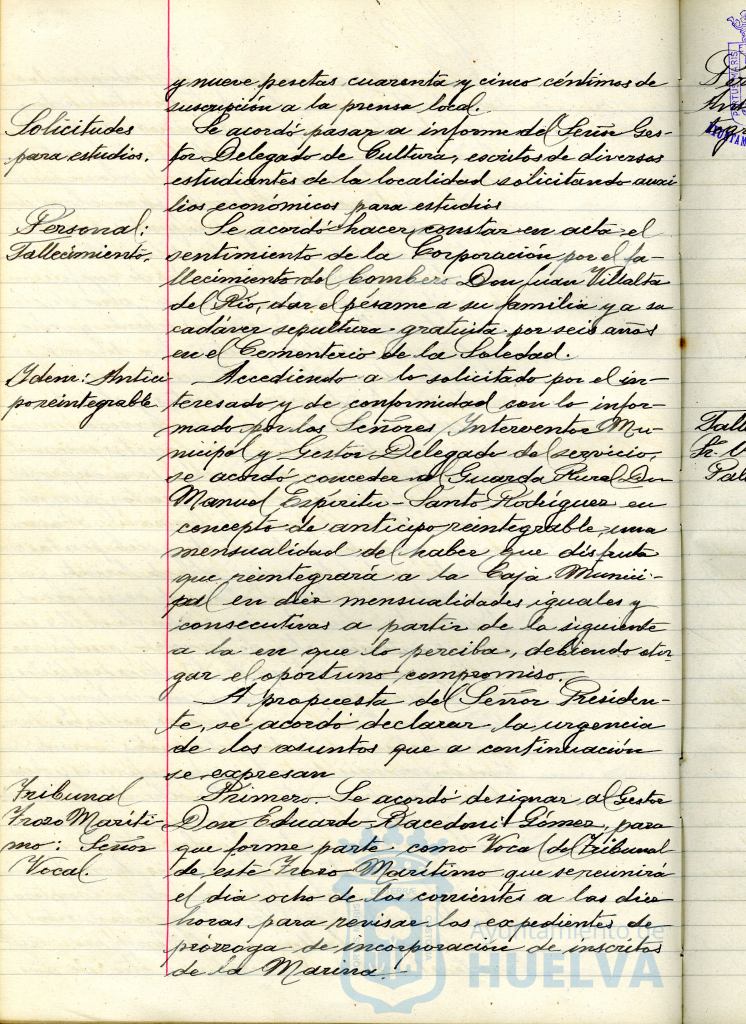 y nueve pesetas cuarenta y cinco céntimos de
suscripción a la prensa local.
Solicitudes
para estudios.
Se acordó pasar a informe del Señor Ges-
tor Delegado de Cultura, escritos de diversos
estudiantes de la localidad solicitando auxi
lios económicos para estudios
Personal:
Fallecimiento.
Se acordó hacer constar en acta el
sentimiento de la Corporación por el fa-
llecimiento del Bombero Don Juan Villalta
del Río, dar el pésame a su familia y a su
cadáver sepultura gratuita por seis años
en el Cementerio de la Soledad.
Idem: Antici
po reintegrable
Accediendo a lo solicitado por el in-
teresado y de conformidad con lo infor-
mado por los Señores Interventor Mu-
nicipal y Gestor Delegado del servicio,
se acordó conceder al Guarda Rural Don
Manuel Espíritu-Santo Rodríguez en
concepto de anticipo reintegrable, una
mensualidad del haber que disfruta
que reintegrará a la Caja Munici-
pal en diez mensualidades iguales y
consecutivas a partir de la siguiente
a la en que lo perciba, debiendo otor
gar el oportuno compromiso.-
A propuesta del Señor Presiden-
te, se acordó declarar la urgencia
de los asuntos que a continuación
se expresan
Tribunal
Trozo Maríti-
mo: Señor
Vocal.
Primero. Se acordó designar al Gestor
Don Eduardo Gómez, para
que forme parte como Vocal del Tribunal
de este Trozo Marítimo que se reunirá
el dia ocho de los corrientes a las diez
horas para revisar los expedientes de
prórroga de incorporación de inscritos
de la Marina.-
Ayuntamiento de
HUELVA